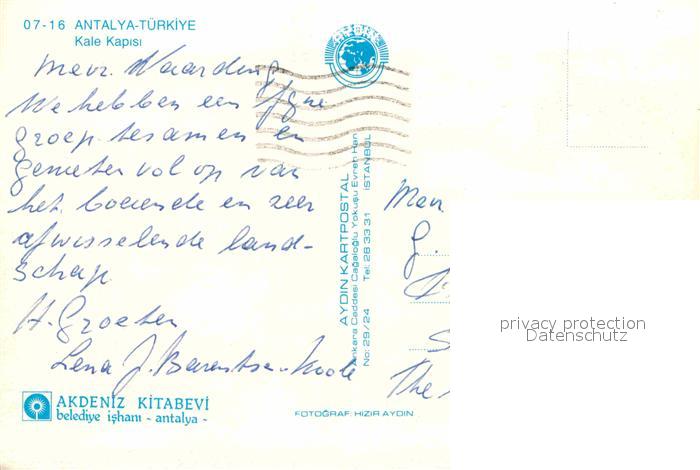 07-16 ANTALYA-TÜRKİYE
Kale Kapısı
Mevr. Naarding
We hebben een fyne
groep tesamen en
genieten vol op van
het boeiende en zeer
afwisselende land-
schap.
H. Groeten
Lena J. Barentsen-Koole
AKDENİZ KİTABEVİ
belediye işhanı - antalya -
AKDENİZ
AYDIN KARTPOSTAL
Ankara Caddesi Cağaloğlu Yokuşu Evren Han
No: 29/24 Tel: 28 33 31 İSTANBUL
FOTOĞRAF: HIZIR AYDIN
Mevr
G.
The
privacy protection
Datenschutz